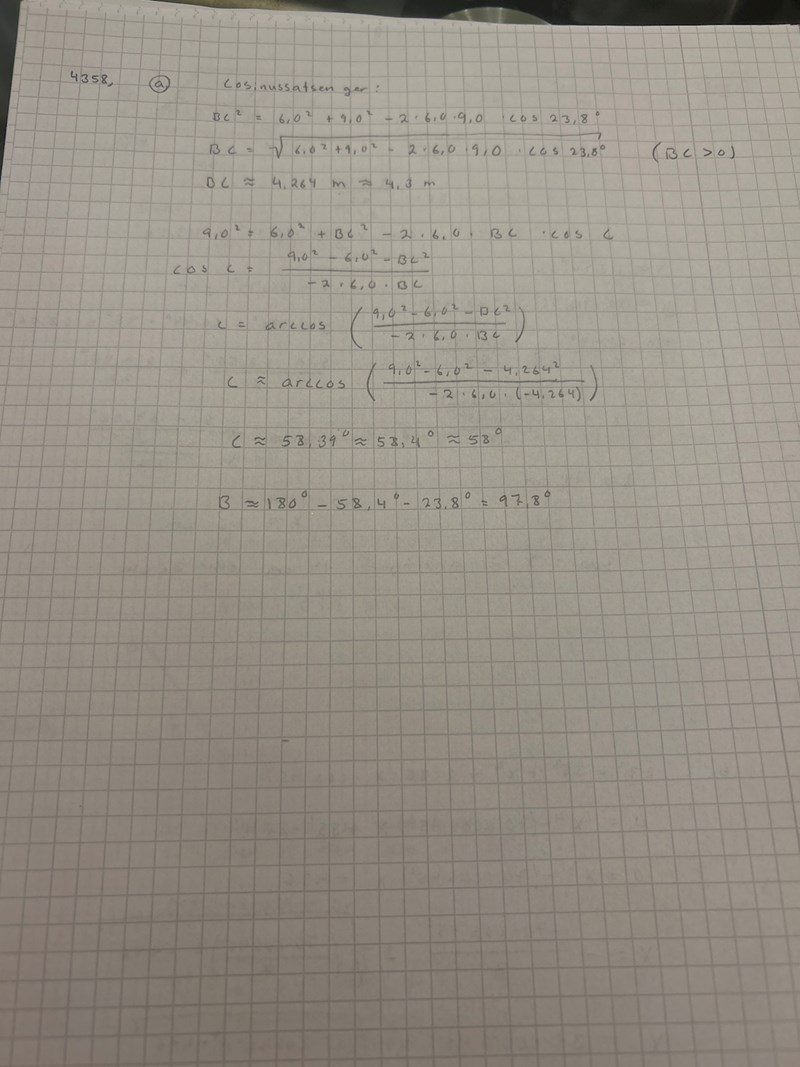 4358, a Cosinussatsen ger:
BC² = 6,0² + 9,0² - 2 · 6,0 · 9,0 · cos 23,8°
BC = √(6,0² + 9,0² - 2 · 6,0 · 9,0 · cos 23,8°) (BC > 0)
BC ≈ 4,264 m ≈ 4,3 m
9,0² = 6,0² + BC² - 2 · 6,0 · BC · cos C
cos C = (9,0² - 6,0² - BC²) / (-2 · 6,0 · BC)
C = arccos ((9,0² - 6,0² - BC²) / (-2 · 6,0 · BC))
C ≈ arccos ((9,0² - 6,0² - 4,264²) / (-2 · 6,0 · (-4,264)))
C ≈ 58,39° ≈ 58,4° ≈ 58°
B ≈ 180° - 58,4° - 23,8° = 97,8°